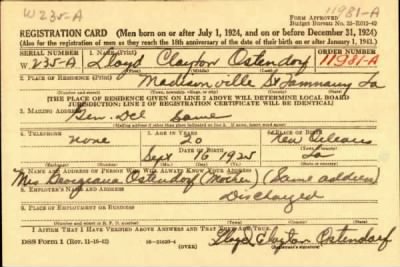 W 235-A
11981-A
Form Approved
REGISTRATION CARD (Men born on or after July 1, 1924, and on or before December 31, 1924)
(Also for the registration of men as they reach the 18th anniversary of the date of their birth on or after January 1, 1943.)
SERIAL NUMBER
1. NAME (Print)
ORDER NUMBER
W 235-A
Lloyd Clayton Ostendorf
11981-A
2. PLACE OF RESIDENCE (Print)
Madisonville St Tammany La
[THE PLACE OF RESIDENCE GIVEN ON LINE 2 ABOVE WILL DETERMINE LOCAL BOARD
JURISDICTION; LINE 2 OF REGISTRATION CERTIFICATE WILL BE IDENTICAL]
3. MAILING ADDRESS
Gen. Del Same
4. TELEPHONE
5. AGE IN YEARS
6. PLACE OF BIRTH
none
20
New Orleans
DATE OF BIRTH
Sept 16 1925
La
7. NAME AND ADDRESS OF PERSON WHO WILL ALWAYS KNOW YOUR ADDRESS
Mrs Ostendorf (Mother) (Same address)
8. EMPLOYER'S NAME AND ADDRESS
Discharged
9. PLACE OF EMPLOYMENT OR BUSINESS
I AFFIRM THAT I HAVE VERIFIED ABOVE ANSWERS AND THAT THEY ARE TRUE.
DSS Form 1
(OVER)
Lloyd Clayton Ostendorf